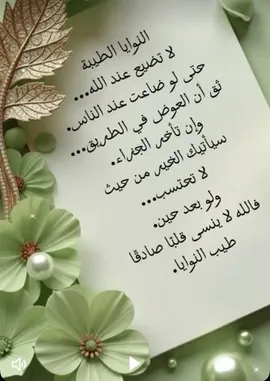 النوايا الطيبة
لا تضيع عند الله...
حتى لو ضاعت عند الناس.
ثق أن العوض في الطريق...
وإن تأخر الجزاء.
سيأتيك الخير من حيث
لا تحتسب...
ولو بعد حين.
فالله لا ينسى قلبًا صادقًا
طيب النوايا.